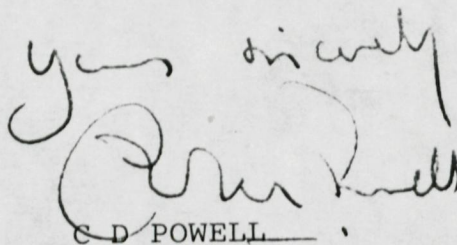 Yours sincerely
Charles Powell
C D POWELL